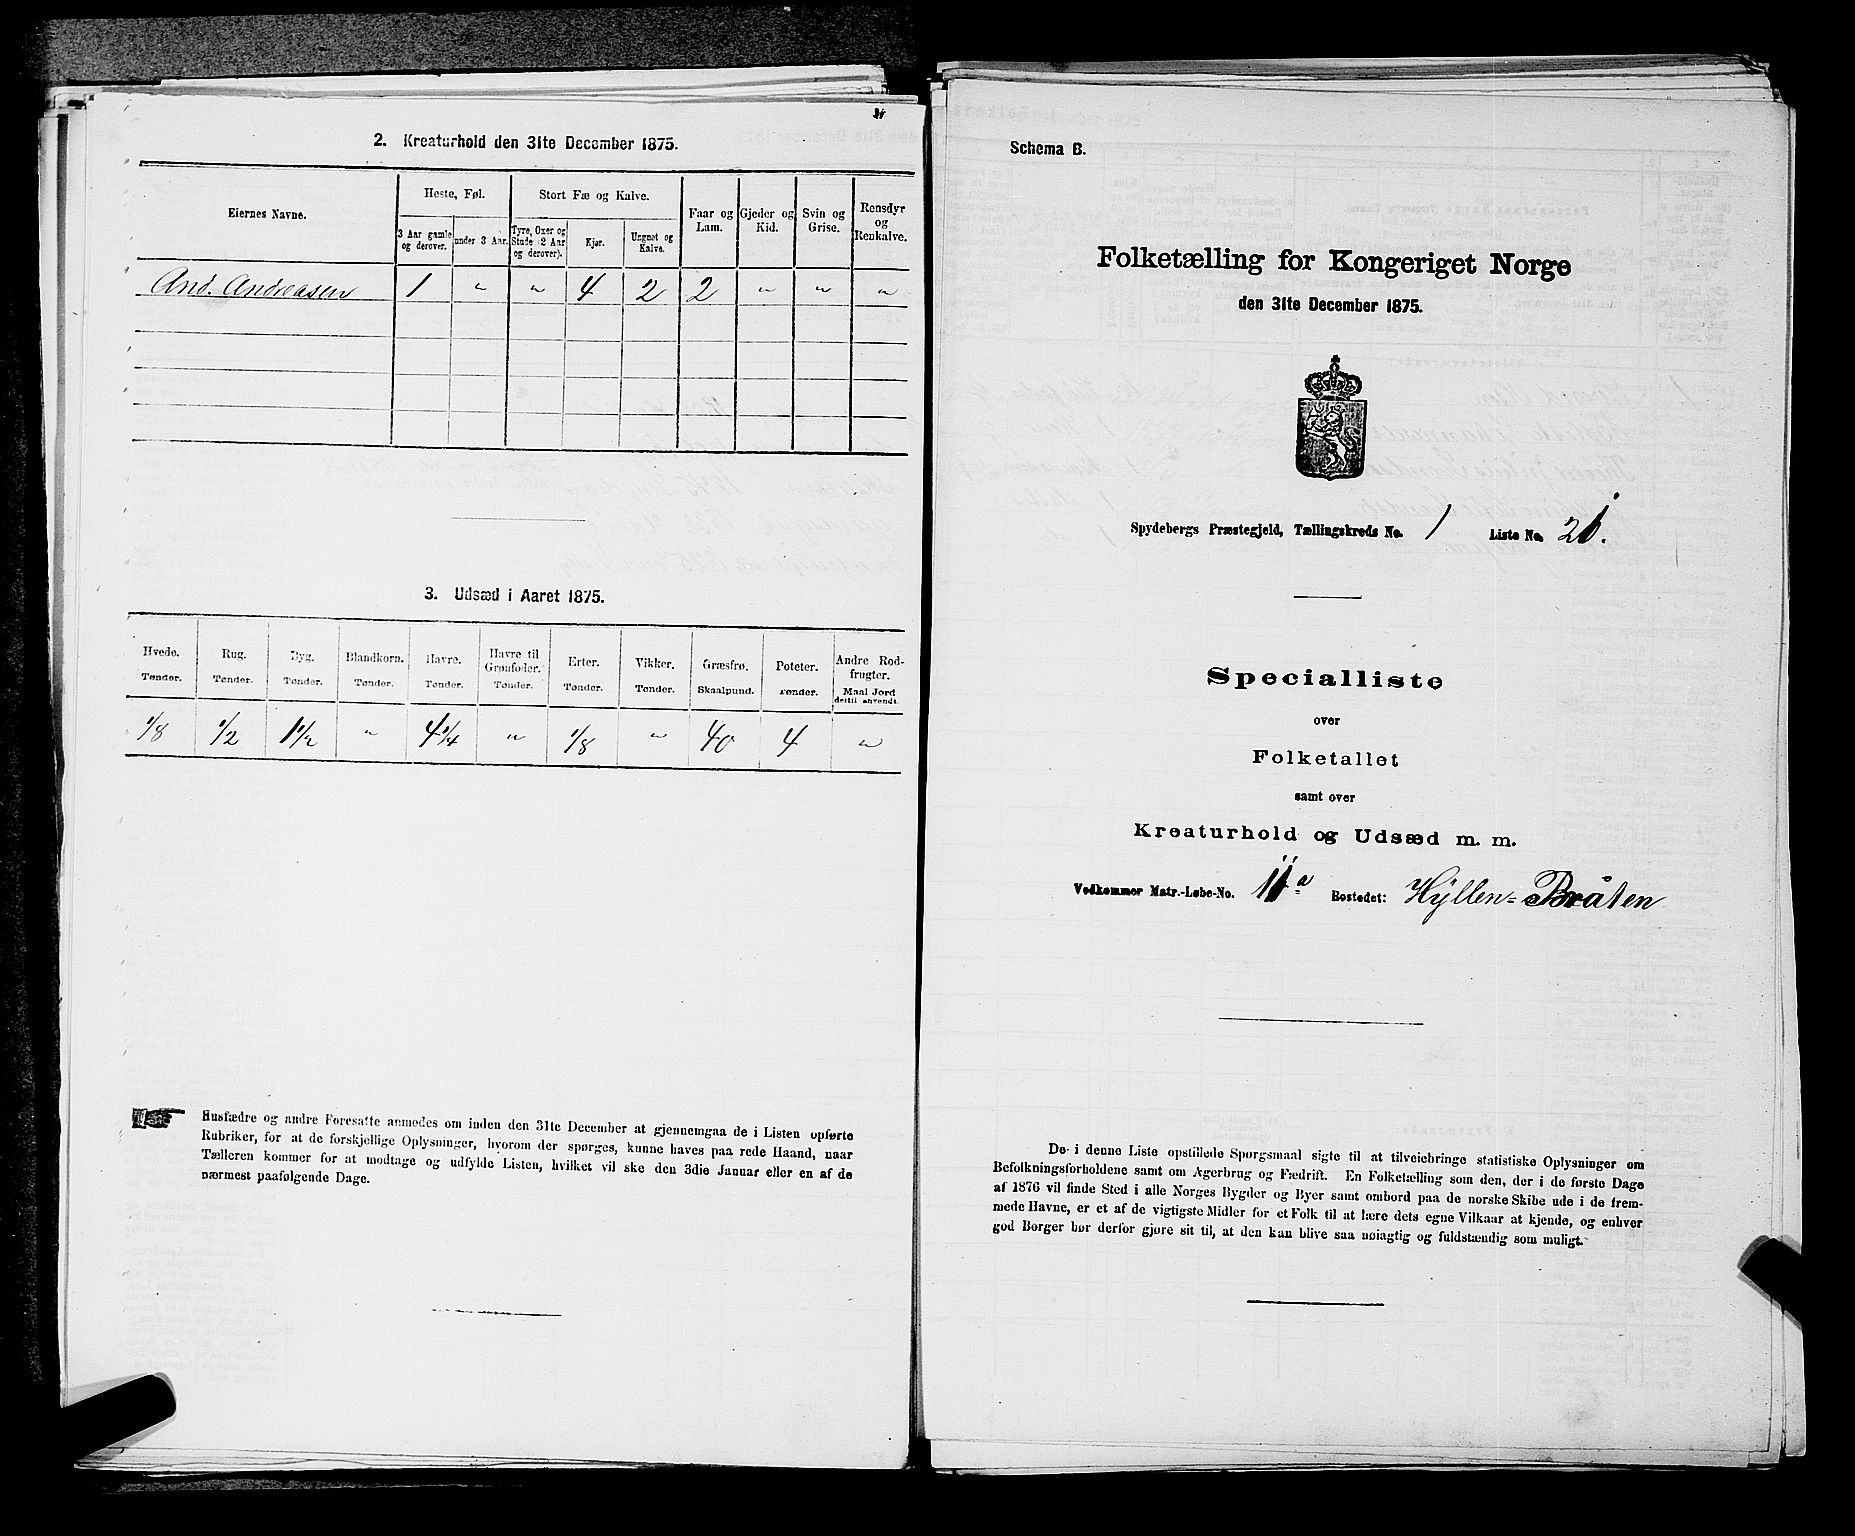 2. Kreaturhold den 31te December 1875.
Eiernes Navne.
Heste, Føl.
Stort Fæ og Kalve.
Faar og Lam.
Gjeder og Kid.
Svin og Grise.
Rensdyr og Renkalve.
3 Aar gamle og derover.
under 3 Aar.
Tyre, Oxer og Stude (2 Aar og derover).
Kjør.
Ungnøt og Kalve.
And. Andreasen 1 " " 4 2 2 " " "
3. Udsæd i Aaret 1875.
Hvede. Rug. Byg. Blandkorn. Havre. Havre til Grønfoder. Erter. Vikker. Græsfrø. Poteter. Andre Rodfrugter.
Tønder. Tønder. Tønder. Tønder. Tønder. Tønder. Tønder. Tønder. Skaalpund. Tønder. Maal Jord dertil anvendt.
1/8 1/2 1 1/2 " 4 1/4 " 1/8 " 40 4 "
Husfædre og andre Foresatte anmodes om inden den 31te December at gjennemgaa de i Listen opførte
Rubriker, for at de forskjellige Oplysninger, hvorom der spørges, kunne haves paa rede Haand, naar
Tælleren kommer for at modtage og udfylde Listen, hvilket vil ske den 3die Januar eller en af de
nærmest paafølgende Dage.
Schema B.
Folketælling for Kongeriget Norge
den 31te December 1875.
Spydebergs Præstegjeld, Tællingskreds No. 1 Liste No. 21.
Specialliste
over
Folketallet
samt over
Kreaturhold og Udsæd m. m.
Vedkommer Matr.-Løbe-No. 11a Bostedet: Hyllen-Bråten
De i denne Liste opstillede Spørgsmaal sigte til at tilveiebringe statistiske Oplysninger om
Befolkningsforholdene samt om Agerbrug og Fædrift. En Folketælling som den, der i de første Dage
af 1876 vil finde Sted i alle Norges Bygder og Byer samt ombord paa de norske Skibe ude i de frem-
mede Havne, er et af de vigtigste Midler for et Folk til at lære dets egne Vilkaar at kjende, og enhver
god Borger bør derfor gjøre sit til, at den kan blive saa nøiagtig og fuldstændig som muligt.